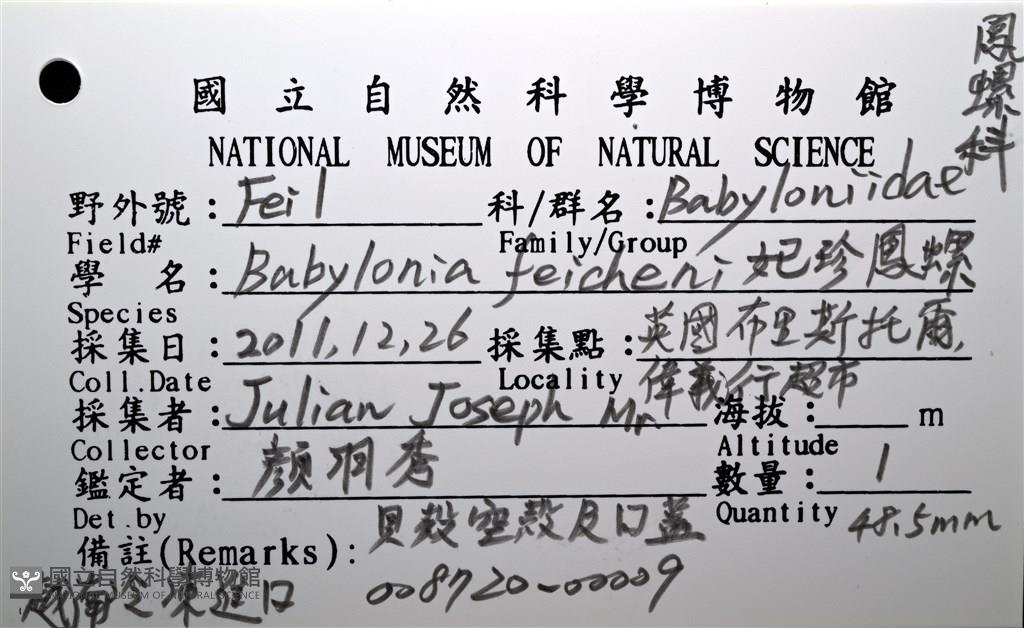 鳳螺科
國立自然科學博物館
NATIONAL MUSEUM OF NATURAL SCIENCE
野外號：Fei1 科/群名：Babyloniidae
Field# Family/Group
學 名：Babylonia feicheni 妃珍鳳螺
Species
採集日：2011,12,26 採集點：英國布里斯托爾,
Coll.Date Locality 偉義行超市
採集者：Julian Joseph Mr. 海拔： m
Collector Altitude
鑑定者：顏羽秀 數量：1
Det.by Quantity 48.5mm
貝殼空殼及口蓋
備註(Remarks)：
越南 進口 008720-00009
國立自然科學博物館
NATIONAL MUSEUM OF NATURAL SCIENCE